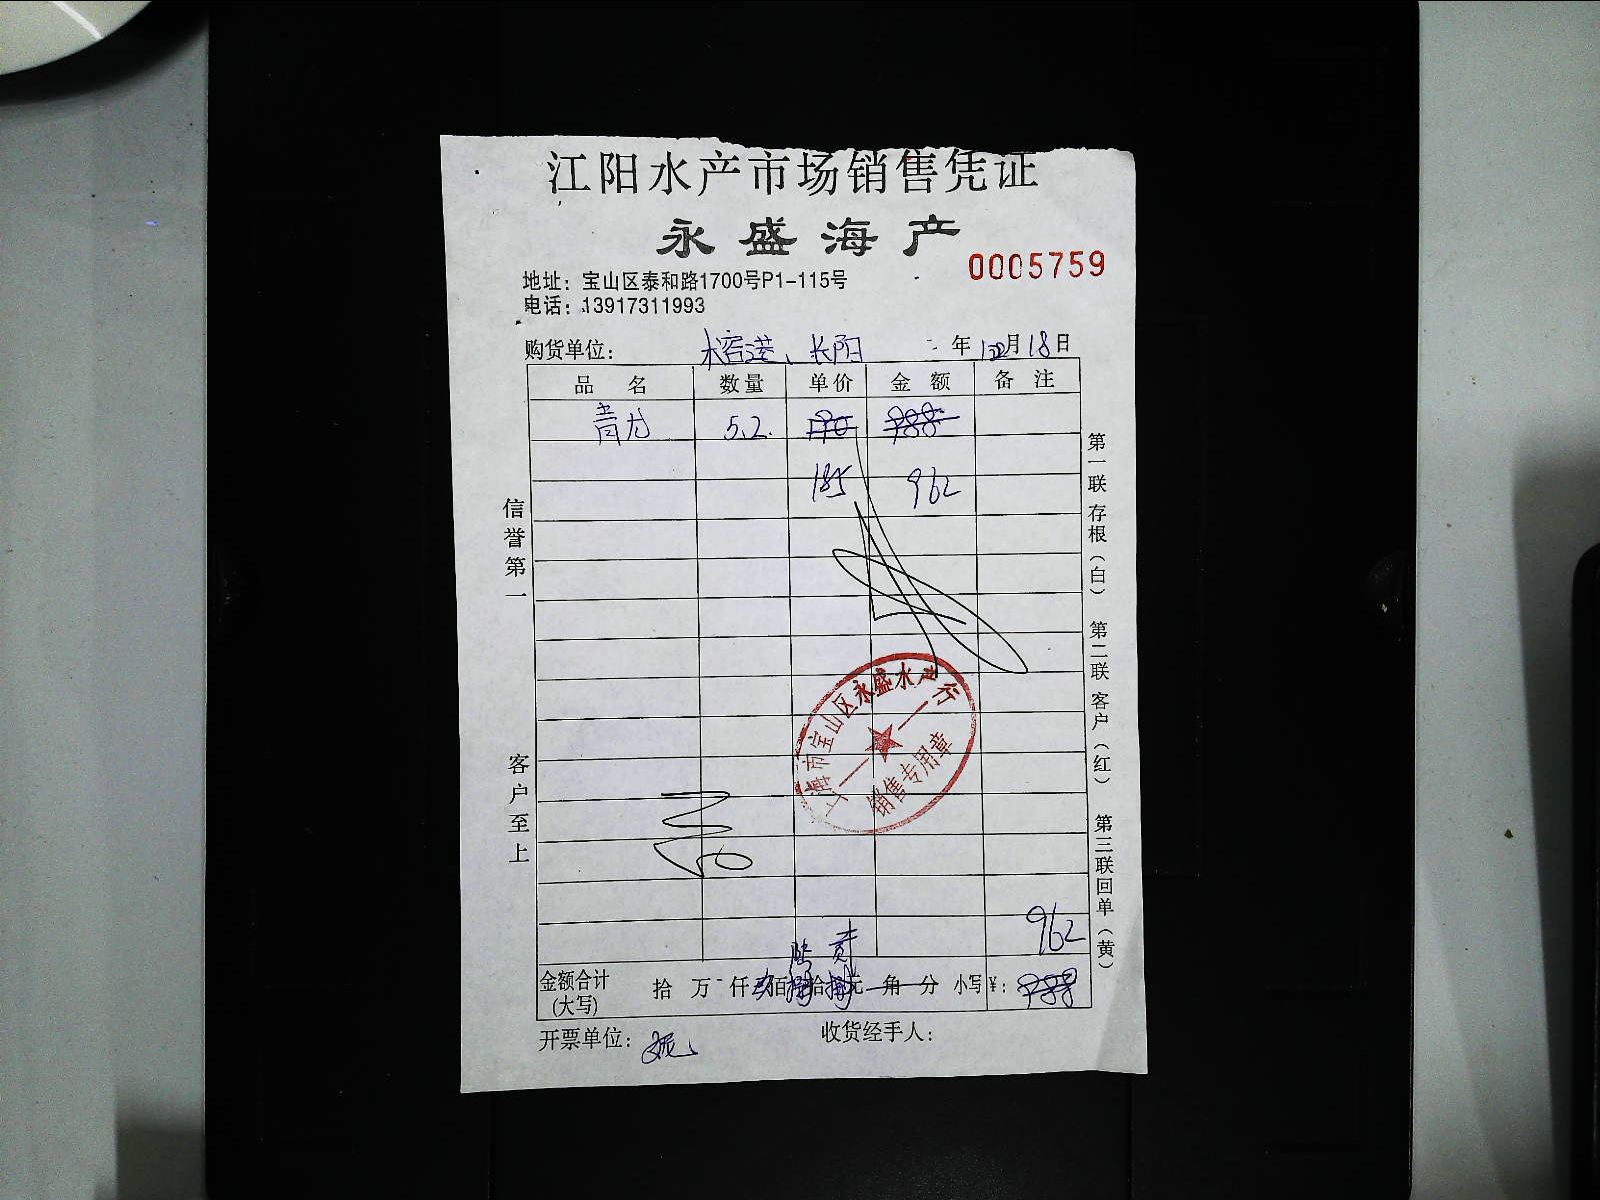 江阳水产市场销售凭证
永盛海产
0005759
地址：宝山区泰和路1700号P1-115号
电话：13917311993
购货单位： 长阳 年 12月18日
品名 数量 单价 金额 备注
青龙 5.2 190 988
185 962
信誉第一
客户至上
第一联 存根（白） 第二联 客户（红） 第三联 回单（黄）
上海市宝山区永盛水产行
销售专用章
962
陆 贰
金额合计(大写) 拾 万 仟 玖佰 拾 元 角 分 小写¥： 988
开票单位： 收货经手人：